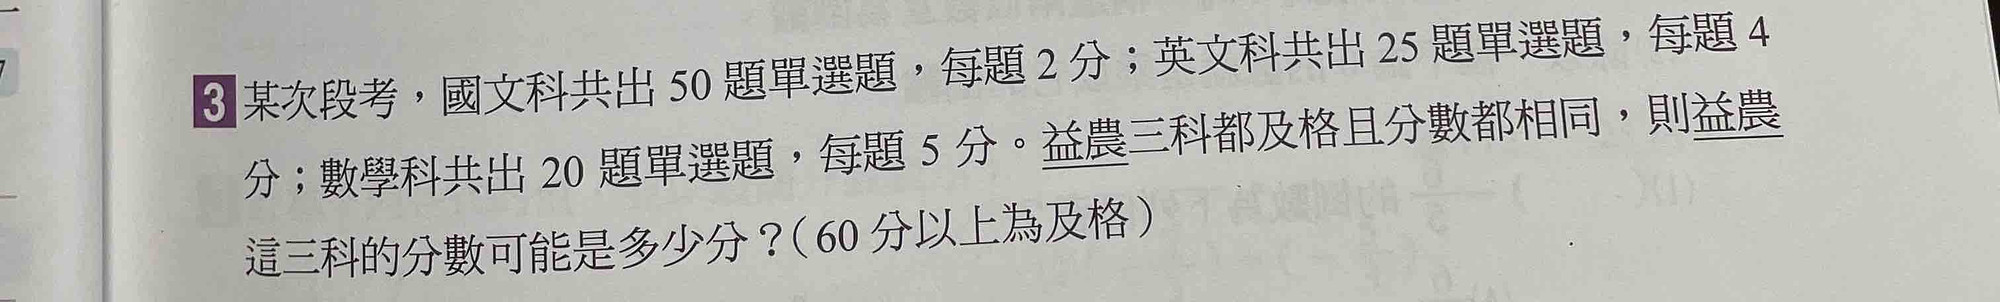 3 某次段考，國文科共出 50 題單選題，每題 2 分；英文科共出 25 題單選題，每題 4
分；數學科共出 20 題單選題，每題 5 分。益農三科都及格且分數都相同，則益農
這三科的分數可能是多少分？（60 分以上為及格）